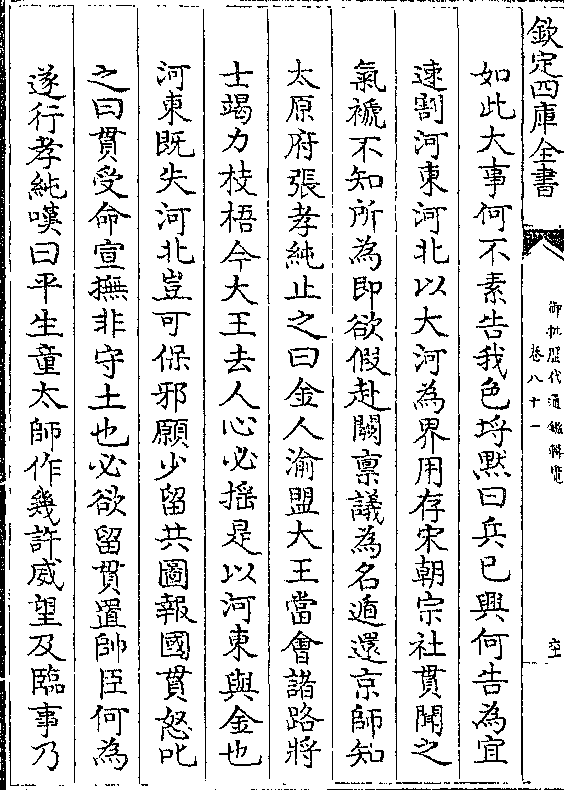 欽定四庫全書
御批歷代通鑑輯覽
卷八十一
如此大事何不素告我色埒黙曰兵已興何告為宜
速割河東河北以大河為界用存宋朝宗社貫聞之
氣褫不知所為即欲假赴闕禀議為名遁還京師知
太原府張孝純止之曰金人渝盟大王當㑹諸路將
士竭力枝梧今大王去人心必揺是以河東與金也
河東既失河北豈可保邪願少留共圖報國貫怒叱
之曰貫受命宣撫非守土也必欲留貫置帥臣何為
遂行孝純嘆曰平生童太師作幾許威望及臨事乃